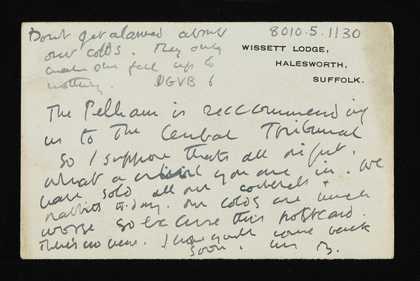 Don't get alarmed about
our colds. They only
make one feel up to
nothing. DGVB 6
8010.5.1130
WISSETT LODGE,
HALESWORTH,
SUFFOLK.
The Pelham is reccommending
us to the Central Tribunal
so I suppose thats all right.
What a you are in. We
have sold all our &
rabbits today. Our colds are much
worse so excuse this postcard.
There's no news. I hope you'll come back
soon.